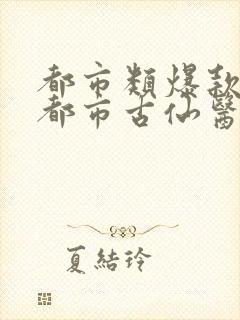 都市類爆款
都市古仙醫
夏結玲